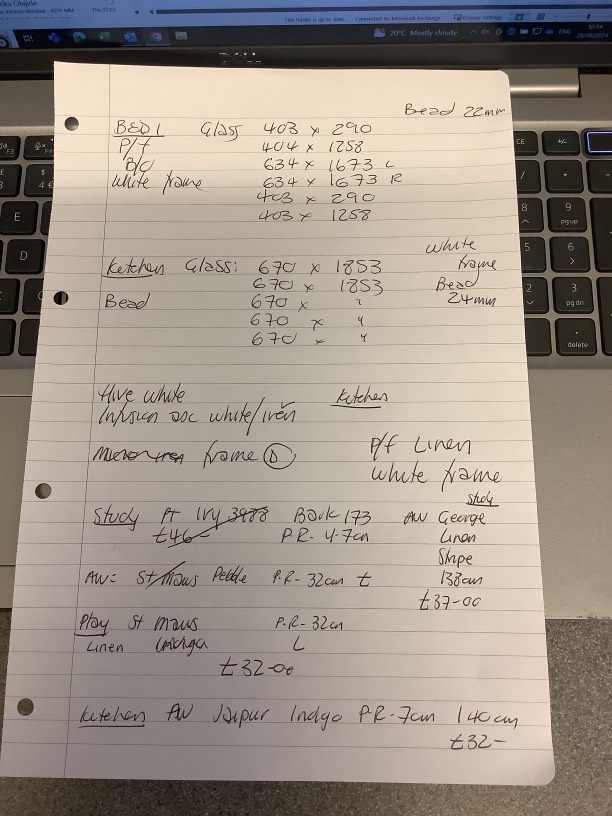 Bead 22mm
BED 1 Glass 403 x 290
P/f 404 x 1258
B/O 634 x 1673 L
White frame 634 x 1673 R
403 x 290
403 x 1258
Kitchen Glass: 670 x 1853
670 x 1853
Bead 670 x "
670 x "
670 x "
White
frame
Bead
24mm
Hive white
Infusion asc white/
Kitchen
frame D
P/f Linen
White frame
Study Pt Ivy 3988 Bark 173
£46-
P.R- 4-7cm
Study
AW George
Linen
Stripe
138cm
£37-00
AW= St Maws Pebble P.R- 32cm £
Play St Maws P.R- 32cm
Linen Indigo L
£32-00
Kitchen AW Jaipur Indigo P.R- 7cm 140cm
£32-
20°C Mostly cloudy
ENG